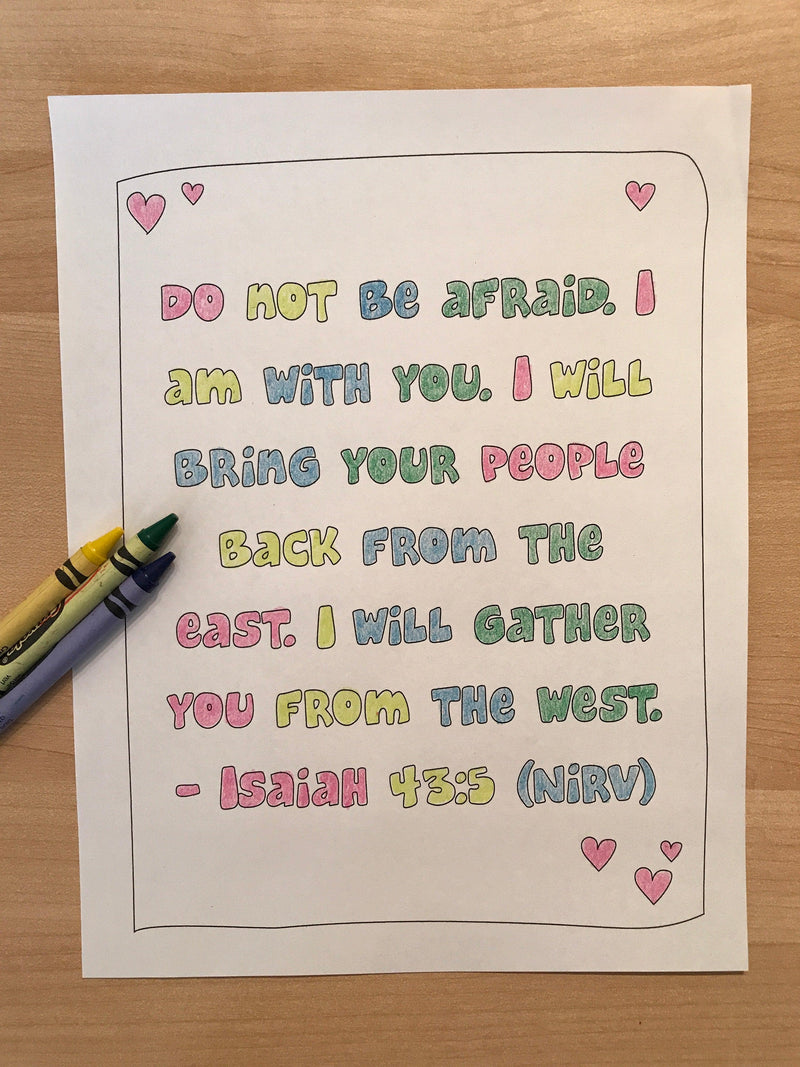 DO NOT BE AFRAID. I
AM WITH YOU. I WILL
BRING YOUR PEOPLE
BACK FROM THE
EAST. I WILL GATHER
YOU FROM THE WEST.
- ISAIAH 43:5 (NIRV)